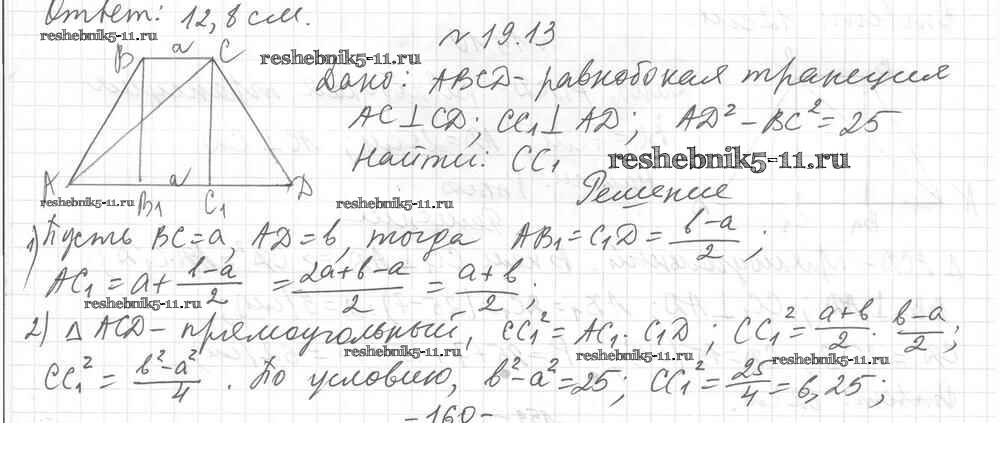 Ответ: 12,8 см.
reshebnik5-11.ru
№ 19.13
B a C
reshebnik5-11.ru
Дано: ABCD - равнобокая трапеция
AC ⊥ CD; CC₁ ⊥ AD; AD² - BC² = 25
Найти: CC₁
reshebnik5-11.ru
A a D
B₁ C₁
reshebnik5-11.ru
reshebnik5-11.ru
Решение
1) Пусть BC = a, AD = b, тогда AB₁ = C₁D = (b-a)/2;
AC₁ = a + (b-a)/2 = (2a+b-a)/2 = (a+b)/2;
reshebnik5-11.ru
2) △ ACD - прямоугольный, CC₁² = AC₁ · C₁D; CC₁² = (a+b)/2 · (b-a)/2;
reshebnik5-11.ru
reshebnik5-11.ru
reshebnik5-11.ru
CC₁² = (b²-a²)/4. По условию, b²-a² = 25; CC₁² = 25/4 = 6,25;
-160-